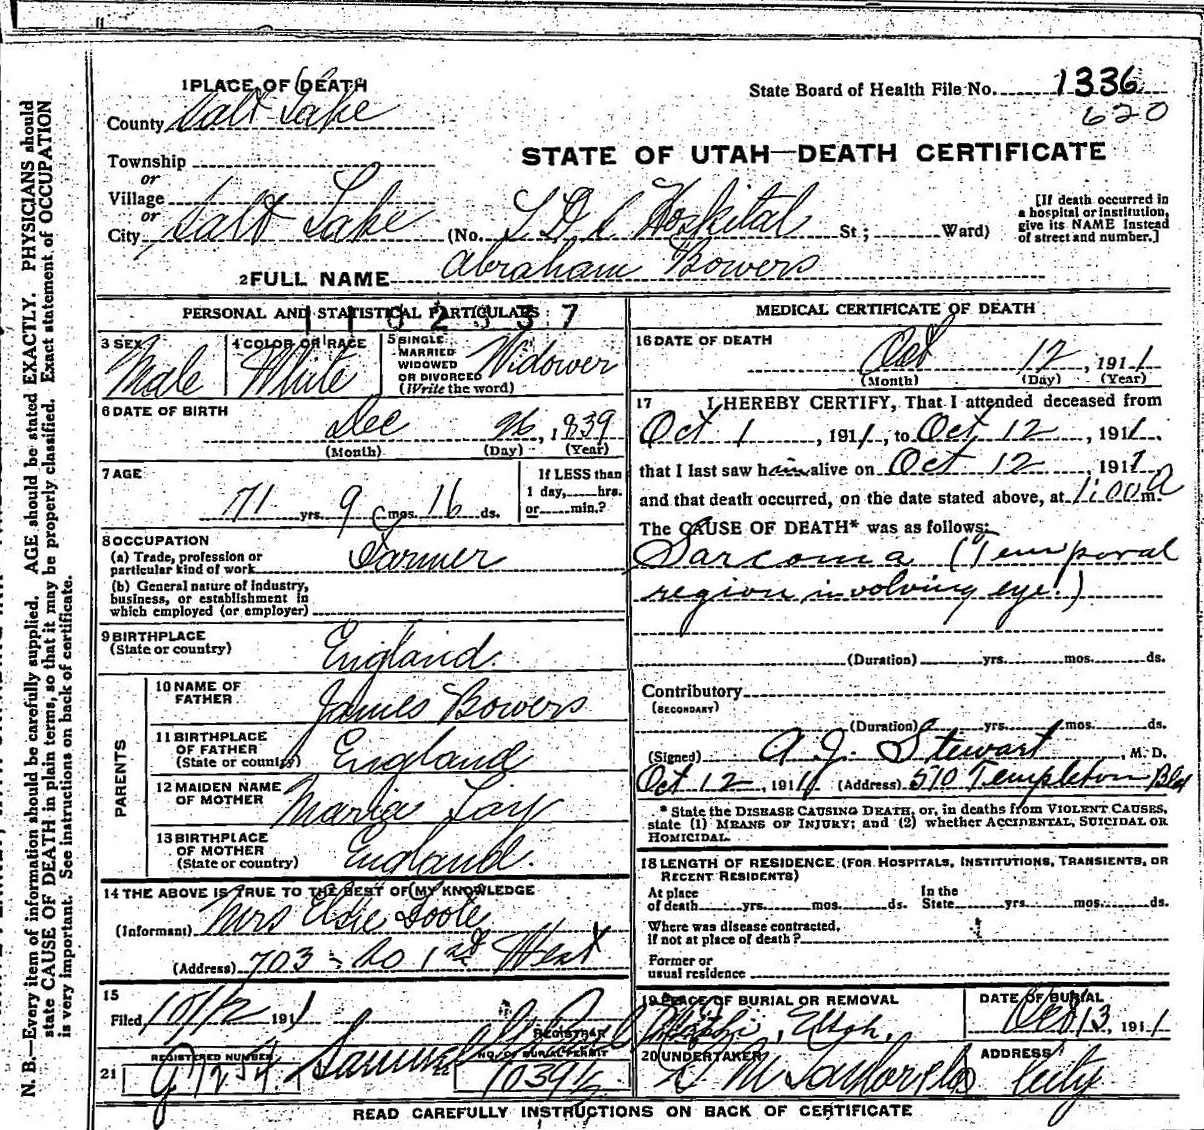 1 PLACE OF DEATH
State Board of Health File No. 1336
620
County Salt Lake
STATE OF UTAH—DEATH CERTIFICATE
Township
or
Village
or
City Salt Lake (No. L D S Hospital St.; Ward)
[If death occurred in a hospital or institution, give its NAME instead of street and number.]
2 FULL NAME Abraham Bowers
PERSONAL AND STATISTICAL PARTICULARS
3 SEX Male
4 COLOR OR RACE White
5 SINGLE, MARRIED WIDOWED OR DIVORCED (Write the word) Widower
6 DATE OF BIRTH
Dec 26, 1839
(Month) (Day) (Year)
7 AGE
71 yrs. 9 mos. 16 ds.
If LESS than 1 day, hrs. or min.?
8 OCCUPATION
(a) Trade, profession or particular kind of work Farmer
(b) General nature of industry, business, or establishment in which employed (or employer)
9 BIRTHPLACE
(State or country) England
PARENTS
10 NAME OF FATHER James Bowers
11 BIRTHPLACE OF FATHER (State or country) England
12 MAIDEN NAME OF MOTHER Maria Lay
13 BIRTHPLACE OF MOTHER (State or country) England.
14 THE ABOVE IS TRUE TO THE BEST OF MY KNOWLEDGE
(Informant) Mrs Elsie Goole
(Address) 703 - So 1st West
15
Filed 10/12 1911
REGISTRAR
REGISTERED NUMBER
NO. OF BURIAL PERMIT
21
MEDICAL CERTIFICATE OF DEATH
16 DATE OF DEATH
Oct 12, 1911
(Month) (Day) (Year)
17 I HEREBY CERTIFY, That I attended deceased from
Oct 1, 1911, to Oct 12, 1911.
that I last saw him alive on Oct 12, 1911
and that death occurred, on the date stated above, at 1:00 A m.
The CAUSE OF DEATH* was as follows:
Sarcoma (Temporal
region involving eye.)
(Duration) yrs. mos. ds.
Contributory
(SECONDARY)
(Duration) yrs. mos. ds.
(Signed) A. J. Stewart, M. D.
Oct 12, 1911 (Address) 510 Templeton Bld
* State the DISEASE CAUSING DEATH, or, in deaths from VIOLENT CAUSES,
state (1) MEANS OF INJURY; and (2) whether ACCIDENTAL, SUICIDAL OR
HOMICIDAL.
18 LENGTH OF RESIDENCE (FOR HOSPITALS, INSTITUTIONS, TRANSIENTS, OR
RECENT RESIDENTS)
At place of death yrs. mos. ds. In the State yrs. mos. ds.
Where was disease contracted,
if not at place of death?
Former or
usual residence
19 PLACE OF BURIAL OR REMOVAL
Utah.
DATE OF BURIAL
Oct 13, 1911
20 UNDERTAKER
ADDRESS
City
READ CAREFULLY INSTRUCTIONS ON BACK OF CERTIFICATE
N. B.—Every item of information should be carefully supplied. AGE should be stated EXACTLY. PHYSICIANS should
state CAUSE OF DEATH in plain terms, so that it may be properly classified. Exact statement of OCCUPATION
is very important. See instructions on back of certificate.